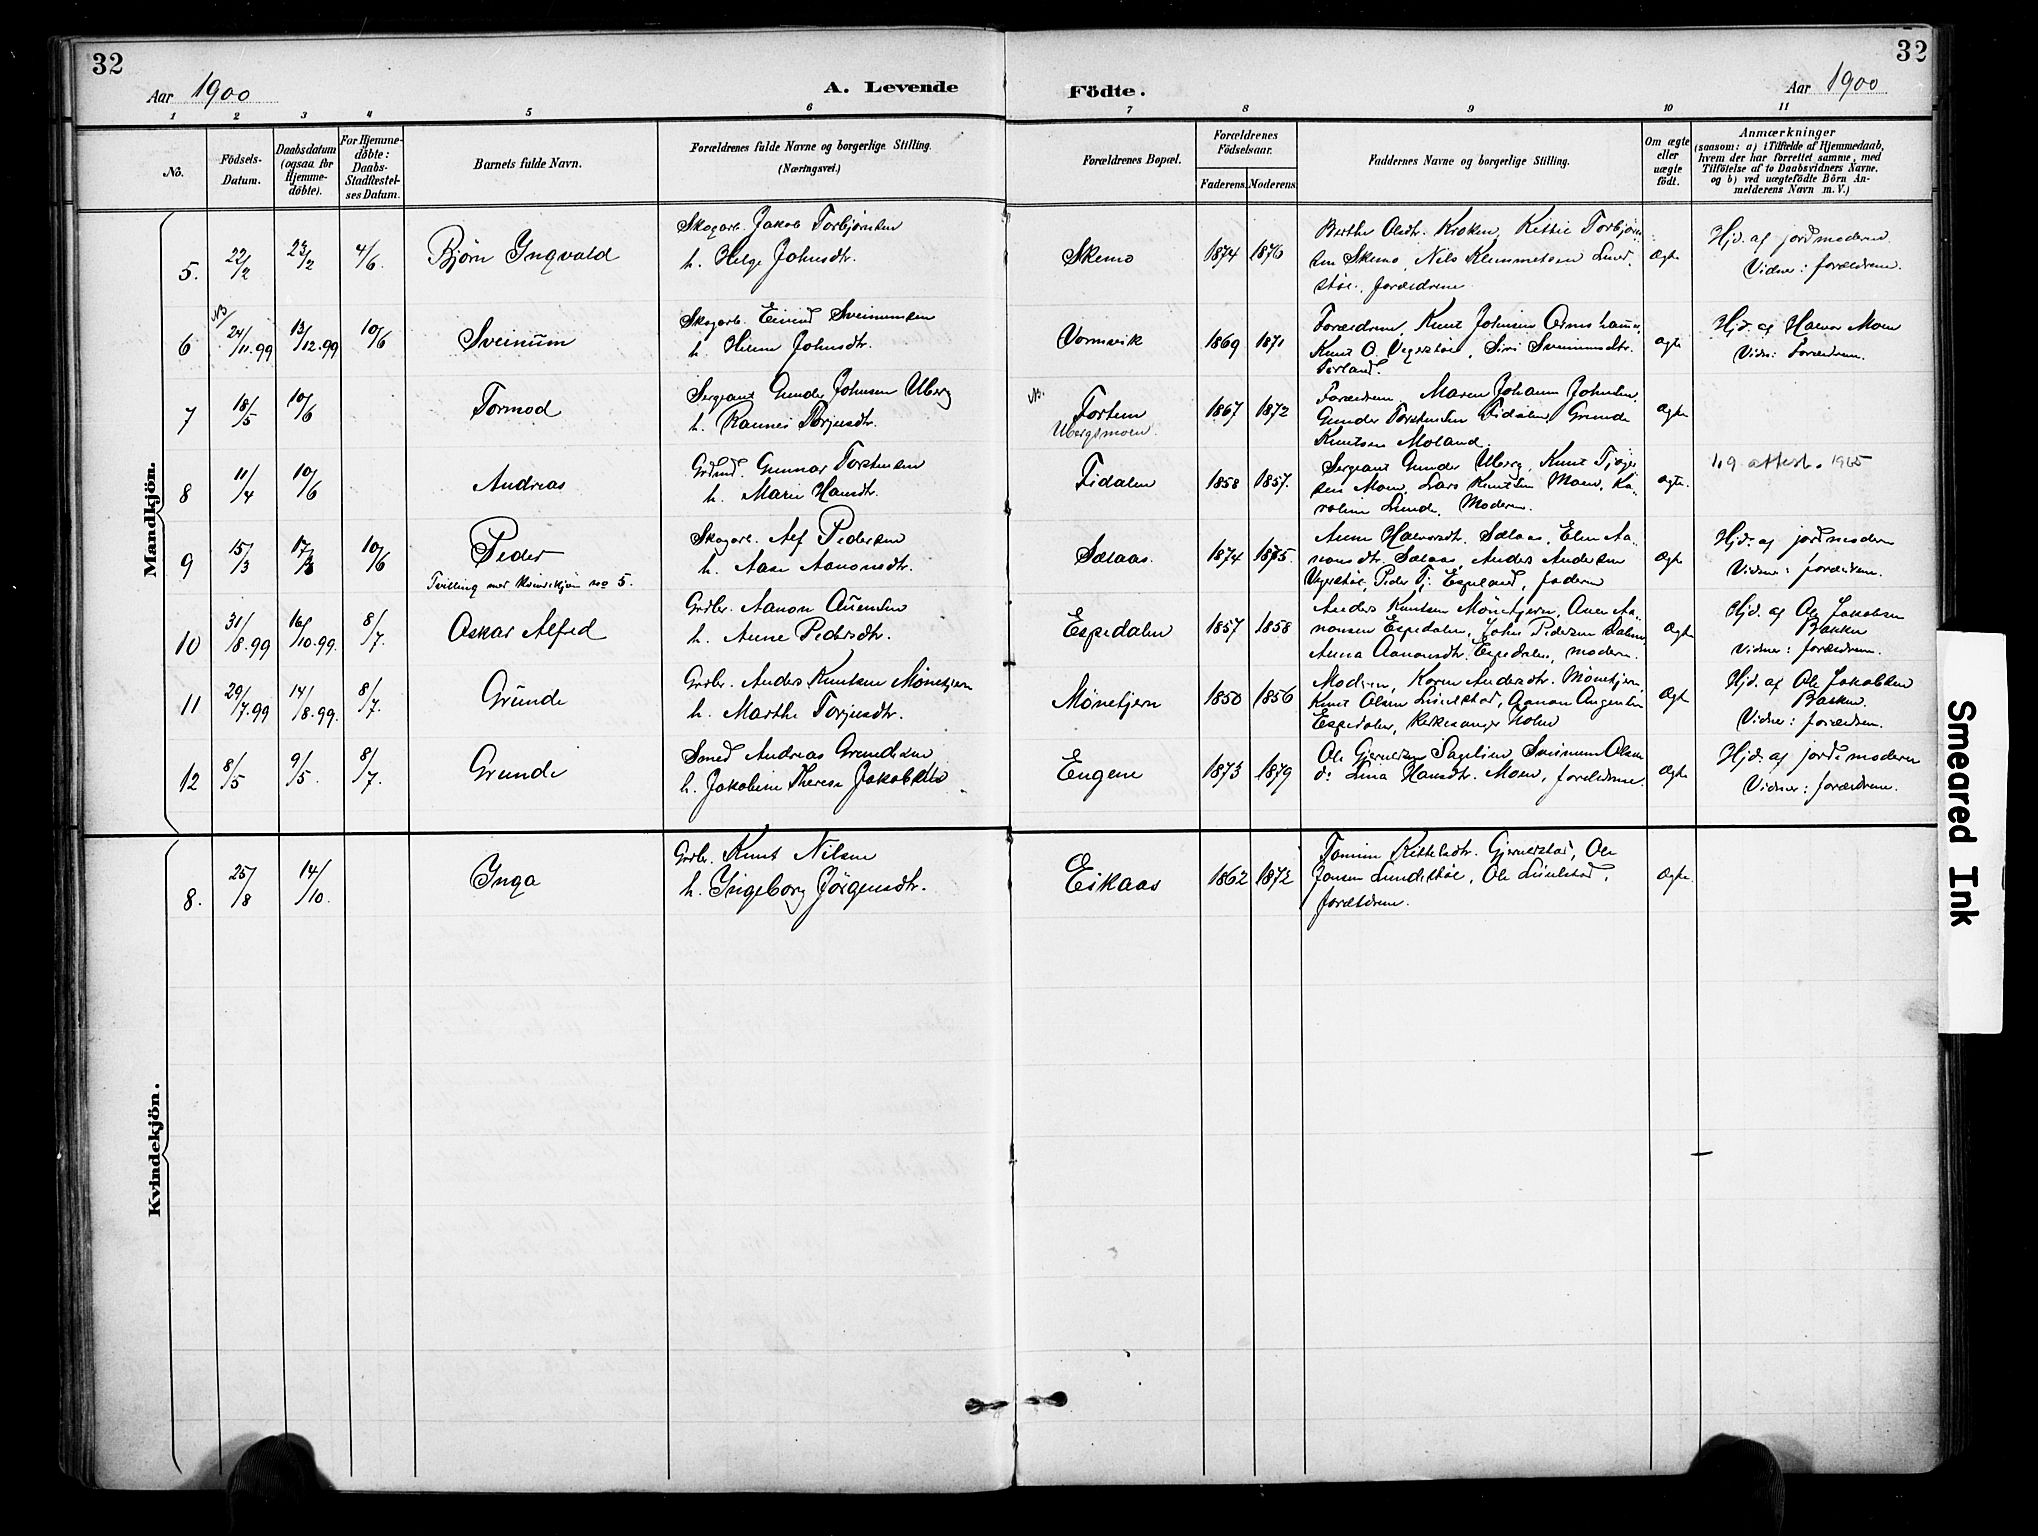 32
32
Aar 1900
A. Levende
Födte.
Aar 1900
1 2 3 4 5 6 7 8 9 10 11
No.
Födsels-Datum.
Daabsdatum (ogsaa for Hjemme-döbte).
For Hjemme-döbte: Daabs-Stadfæstel-ses Datum.
Barnets fulde Navn.
Forældrenes fulde Navne og borgerlige Stilling. (Næringsvei.)
Forældrenes Bopæl.
Forældrenes Födselsaar.
Faderens. Moderens.
Faddernes Navne og borgerlige Stilling.
Om ægte eller uægte födt.
Anmærkninger
(saasom: a) i Tilfælde af Hjemmedaab, hvem der har forrettet samme, med Tilföielse af to Daabsvidners Navne, og b) ved uægtefödte Börn An-melderens Navn m. V.)
Mandkjön.
5. 22/2 23/2 4/6. Bjørn Ingvald
Skogarb. Jakob Torbjørnsen
h. Helge Johnsdtr.
Skemo 1874 1876
Berthe Olsdtr. Kroken, Kittie Torbjørn-
sen Skemo, Nils Klemmetsen Lund-
støl, forældrene
Ægte
Hjd. af jordmoderen
Vidner: forældrene.
NB
6 24/11.99 13/12.99 10/6 Sveinum
Skogarb. Eivind Sveinumsen
h. Johnsdtr.
Vormvik 1869 1871
Forældrene, Knut Johnsen
Knut O. Vegestøl, Siri Sveinumsdtr.
ægte
Hjd. af Halvor Moen
Vidn: Forældrene.
7 18/5 10/6 Tormod
Sergeant Gunder Johnsen Uberg
h. Torjusdtr.
NB.
Fortem
Ubergsmoen.
1867 1872
Forældrene, Maren Johanne Johnsen,
Gunder Torstensen Fidalen, Grunde
Knutsen Moland.
Ægte
8 11/4 10/6 Andreas
Gunnar Torstensen
h. Marie Hansdtr.
Fidalen 1858 1857.
Sergeant Gunder Uberg, Knut
sen Moen, Lars Knutsen Moen, Ka-
roline Lunde, Moderen.
ægte.
attest. 1965
9 15/3 17/3 10/6 Peder
Tvilling med Kvindekjøn no 5.
Skogarb. Alf Pedersen
h. Aase Aanonsdtr.
Sælaas. 1874 1875.
Anne Halvorsdtr. Sælaas, Elen Aa-
nonsdtr. Sælaas, Anders Andersen
Vegestøl, Peder Tj. Espeland, faderen
Ægte
Hjd. af jordmoderen
Vidner: forældrene.
10 31/8.99 16/10.99. 8/7. Oskar Alfred
Grdbr. Aanon Auensen
h. Anne Pedersdtr.
Espedalen 1857 1858
Anders Knutsen Mönetjern, Auen Aa-
nonsen Espedalen, John Pedersen Dalen,
Anna Aanonsdtr. Espedalen, moderen.
Ægte
Hjd. af Ole Jakobsen
Bakken
Vidner: forældrene.
11 29/7.99 14/8.99. 8/7. Grunde
Grdbr. Anders Knutsen Mönetjern
h. Marthe Torjusdtr.
Mönetjern 1850 1856
Moderen, Karen Andersdtr. Mönetjern,
Knut Olsen Lindstad, Aanon Augensen
Espedalen, Kirkesanger Holm
Ægte
Hjd. af Ole Jakobsen
Bakken.
Vidner: forældrene.
12 8/5 9/5. 8/7. Grunde
Smed Andreas Grundesen
h. Jakobine Therese Jakobsdtr.
Engene 1873 1879
Ole Gjeruldsen Sagelien, Sveinum Olsen
d: Lina Hansdtr. Moen, forældrene.
Ægte
Hjd. af jordemoderen
Vidner: forældrene.
Kvindekjön.
8. 25/8 14/10. Inga
Grdbr. Knut Nilsen
h. Ingeborg Jörgensdtr.
Eikaas 1862 1872
Tomine Kittelsdtr. Gjerulstad, Ole
Jonsen Lundestøl, Ole Lindstad,
forældrene.
Ægte
Smeared Ink